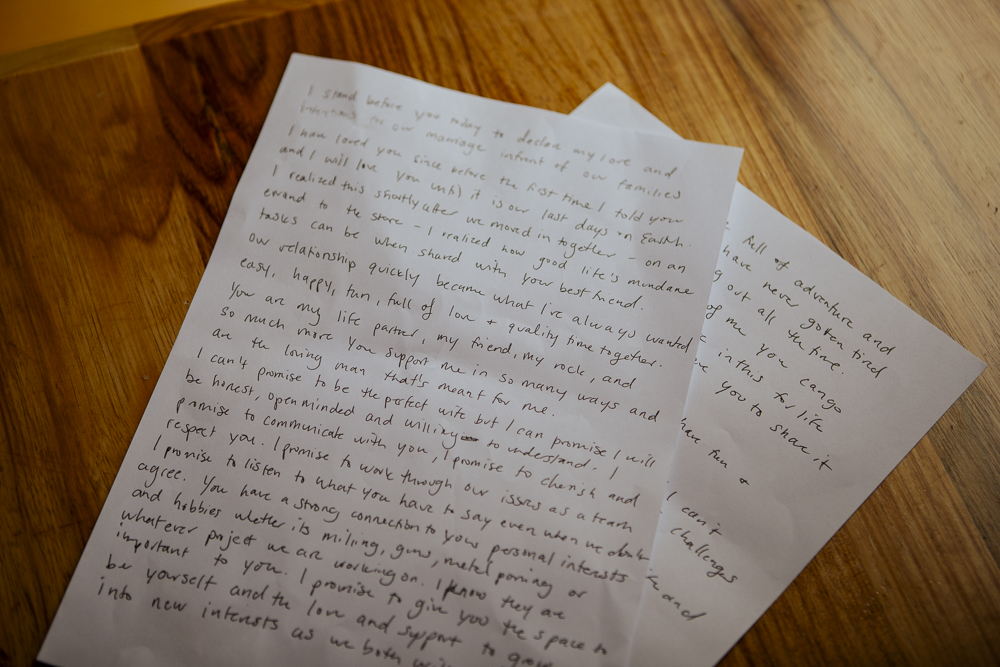 I stand before you today to declare my love and
intentions to our marriage infront of our families
I have loved you since before the first time I told you
and I will love you until it is our last days on Earth.
I realized this shortly after we moved in together - on an
errand to the store - I realized how good life's mundane
tasks can be when shared with your best friend.
Our relationship quickly became what I've always wanted
easy, happy, fun, full of love + quality time together.
You are my life partner, my friend, my rock, and
so much more you support me in so many ways and
are the loving man that's meant for me.
I can't promise to be the perfect wife but I can promise I will
be honest, openminded and willing to understand. I
promise to communicate with you, I promise to cherish and
respect you. I promise to work through our issues as a team
I promise to listen to what you have to say even when we don't
agree. You have a strong connection to your personal interests
and hobbies whether its milling, guns, metal or
whatever project we are working on. I know they are
important to you. I promise to give you the space to
be yourself and the love and support to grow
into new interests as we both
full of adventure and
have never gotten tired
out all the time.
of me you can go
in this for life
you to share it
have fun +
I can't
challenges
and